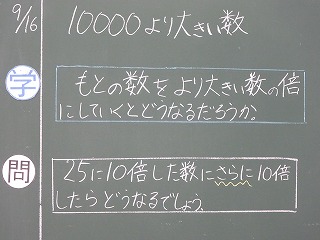 9/16
10000より大きい数
学
もとの数をより大きい数の倍
にしていくとどうなるだろうか。
問
25に10倍した数にさらに10倍
したらどうなるでしょう。